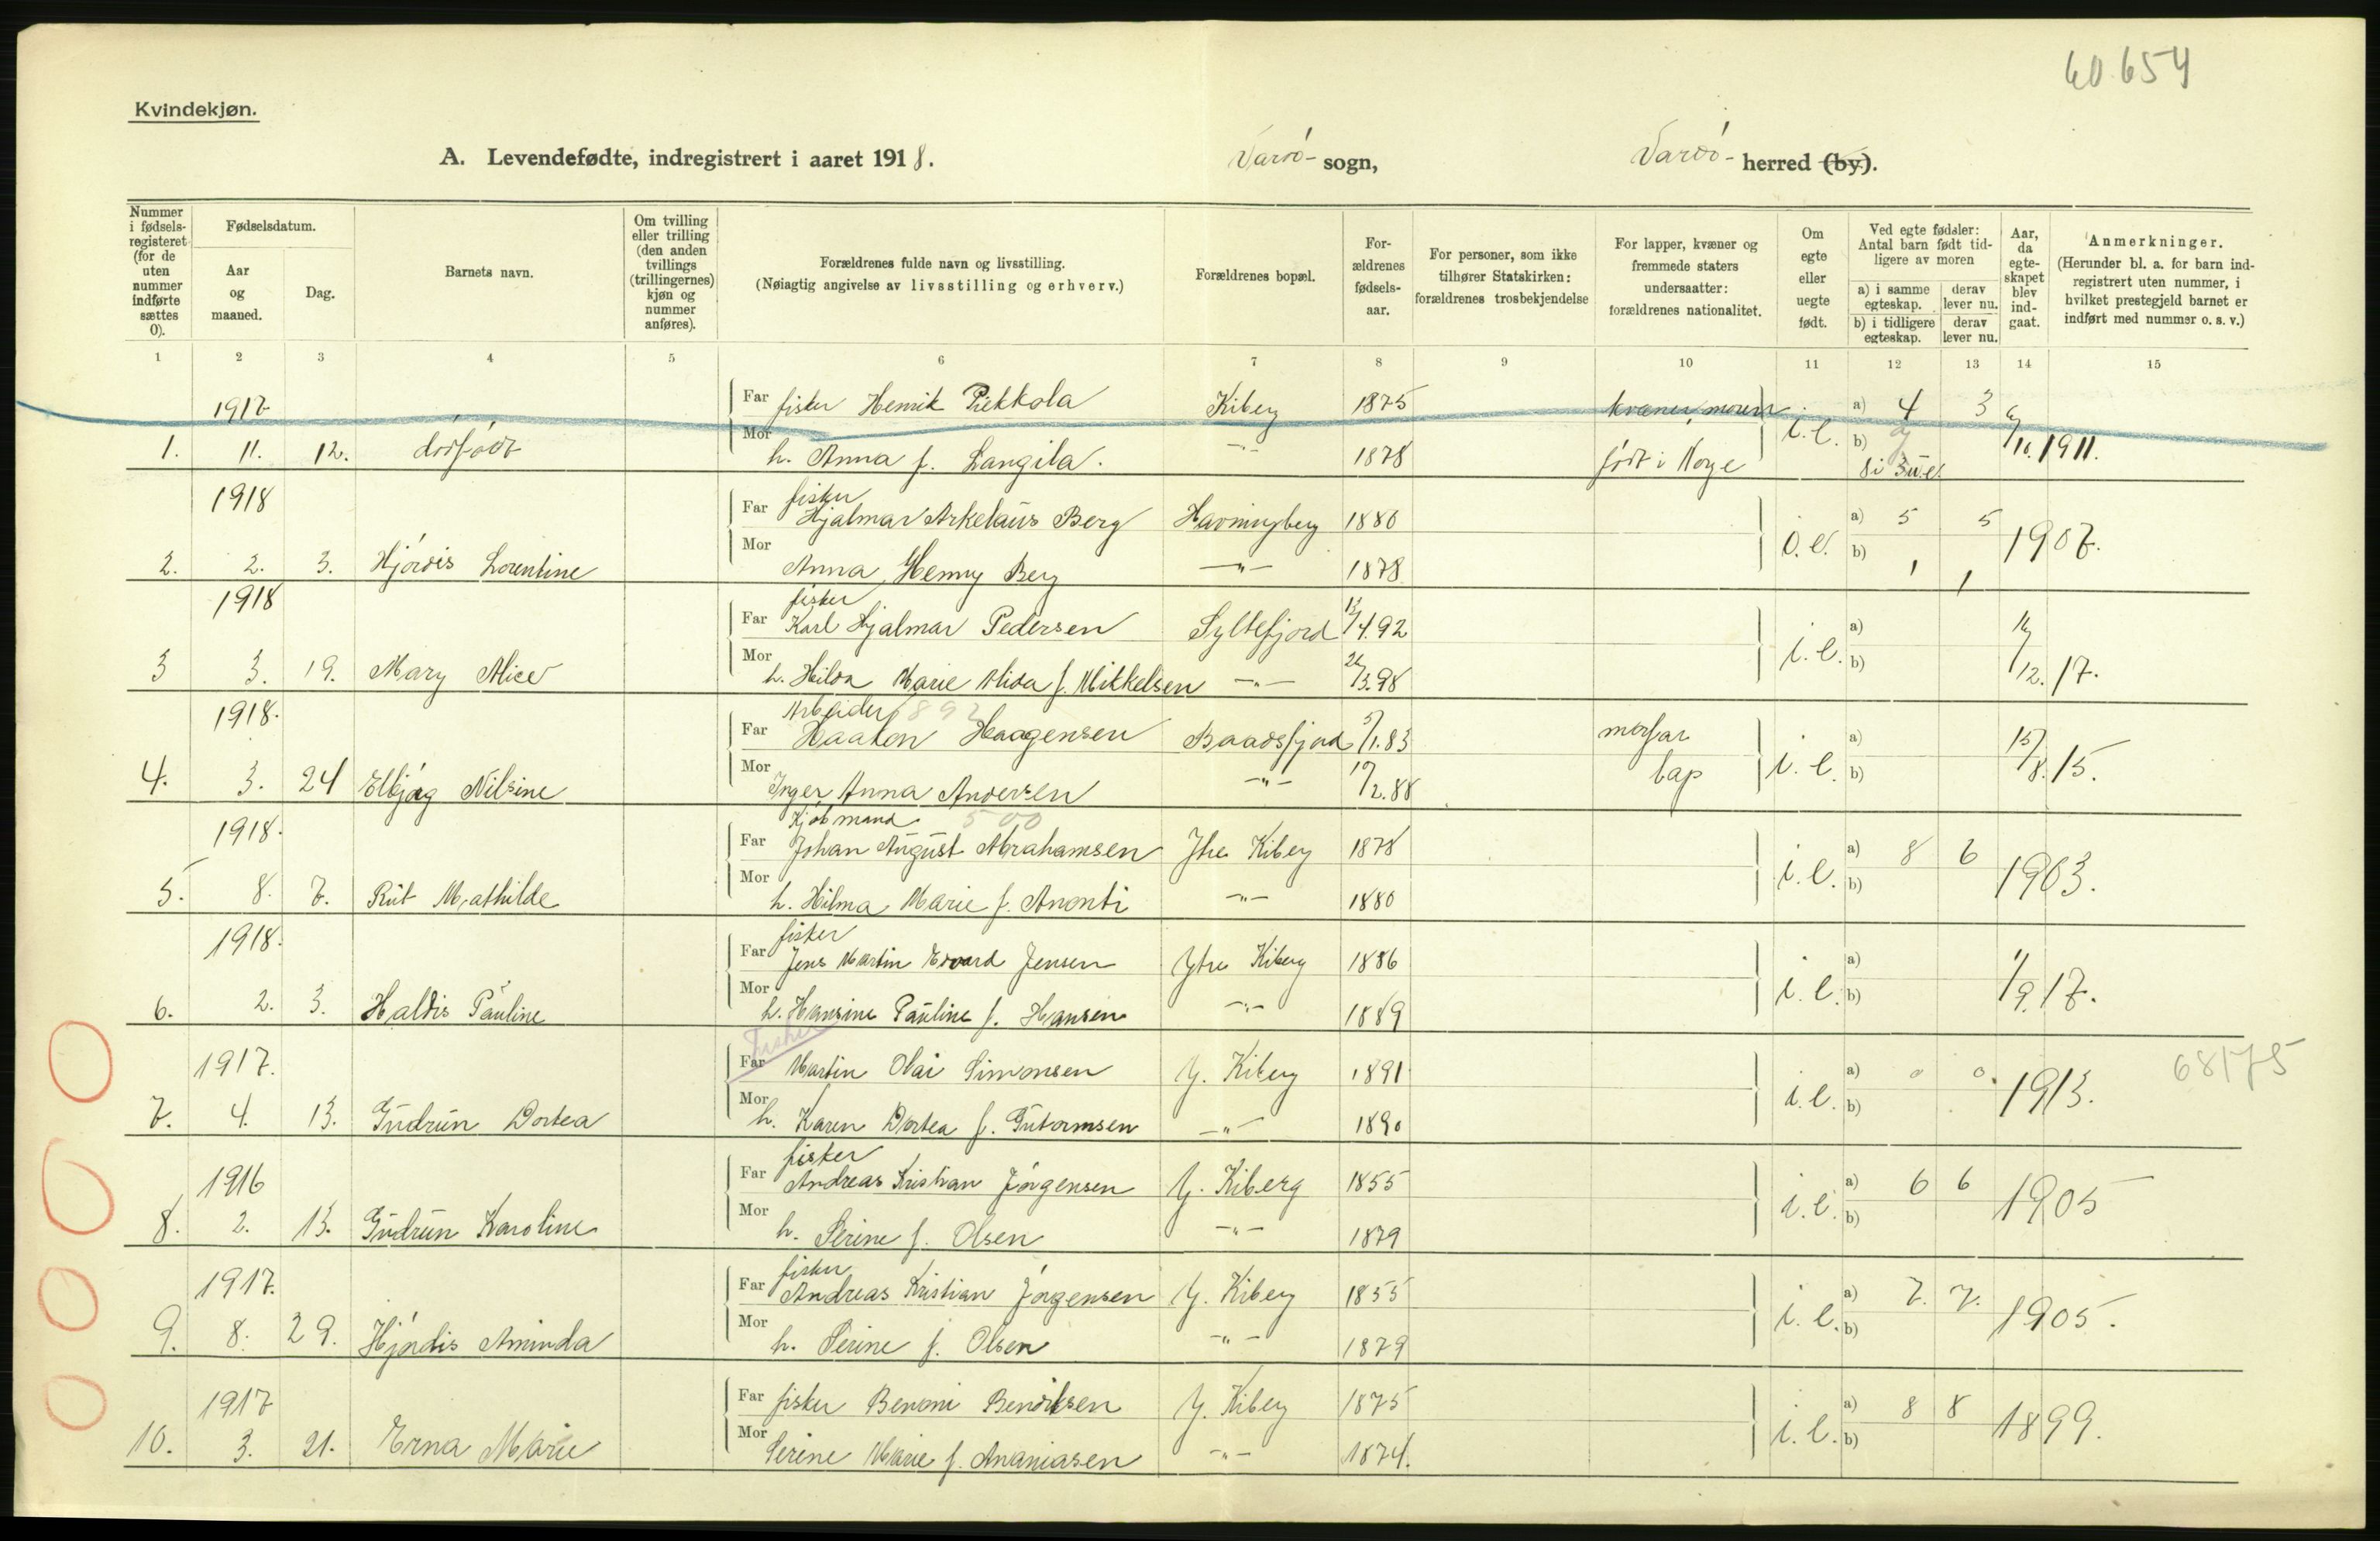 60654
Kvindekjøn.
A. Levendefødte, indregistrert i aaret 1918. Vardö- sogn, Vardö- herred (by).
Nummer i fødsels-registeret (for de uten nummer indførte sættes 0).
Fødselsdatum.
Aar og maaned.
Dag.
Barnets navn.
Om tvilling eller trilling (den anden tvillings (trillingernes) kjøn og nummer anføres).
Forældrenes fulde navn og livsstilling.
(Nøiagtig angivelse av livsstilling og erhverv.)
Forældrenes bopæl.
For-ældrenes fødsels-aar.
For personer, som ikke tilhører Statskirken: forældrenes trosbekjendelse
For lapper, kvæner og fremmede staters undersaatter: forældrenes nationalitet.
Om egte eller uegte født.
Ved egte fødsler: Antal barn født tid-ligere av moren
a) i samme egteskap. derav lever nu.
b) i tidligere egteskap. derav lever nu.
Aar, da egte-skapet blev ind-gaat.
Anmerkninger.
(Herunder bl. a. for barn ind-registrert uten nummer, i hvilket prestegjeld barnet er indført med nummer o. s. v.)
1 2 3 4 5 6 7 8 9 10 11 12 13 14 15
1917 Far fisker Henrik Pekkola Kiberg 1875 kvæner, moren a) 4 3 6/
1. 11. 12. dödfödt Mor h. Anna f. Langila. -"- 1878 födt i Norge i.e. b) /10. 1911.
1918 fisker
Far Hjalmar Arkelaus Berg Havningberg 1880 a) 5 5
2. 2. 3. Hjördis Lorentine Mor Anna Henny Berg -"- 1878 i.e. b) 1 1 1907.
1918 fisker
Far Karl Hjalmar Pedersen Syltefjord 13/4.92 a)
3 3. 19. Mary Alice Mor h. Hilda Marie Alida f. Mikkelsen -"- 26/3.98 i.e. b) /12. 17.
1918. Arbeider 892
Far Haakon Haagensen Baadsfjord 5/1.83 morfar a) 15/
4. 3. 24 Elbjörg Nilsine Mor Inger Anna Andersen -"- 17/2.88 lap i.e. b) 8. 15.
1918. Kjöbmand. 500
Far Johan August Abrahamsen Ytre Kiberg 1878 a) 8 6
5. 8. 7. Rut Mathilde Mor h. Hilma Marie f. Anonti -"- 1880 i.e. b) 1903.
1918. fisker
Far Jens Martin Edvard Jensen Ytre Kiberg 1886 a)
6. 2. 3. Haldis Pauline Mor h. Hansine Pauline f. Hansen -"- 1889 i.e. b) 1/9. 17.
Fisker
1917. Far Martin Olai Simonsen Y. Kiberg 1891 a) 0 0. 68175
7. 4. 13. Gudrun Dortea Mor h. Karen Dortea f. Gutormsen -"- 1890 i.e. b) 1913.
fisker
1916 Far Andreas Kristian Jörgensen Y. Kiberg 1855 a) 6 6
8. 2. 13. Gudrun Karoline Mor h. Serine f. Olsen -"- 1879 i.e. b) 1905
fisker
1917. Far Andreas Kristian Jörgensen Y. Kiberg 1855 a) 7. 7.
9. 8. 29. Hjördis Aminda Mor h. Serine f. Olsen -"- 1879 i.e. b) 1905.
1917 Far fisker Benoni Bendiksen Y. Kiberg 1875 a) 8 8
10. 3. 21. Erna Marie Mor Serine Marie f. Ananiasen -"- 1874. i.e. b) 1899.